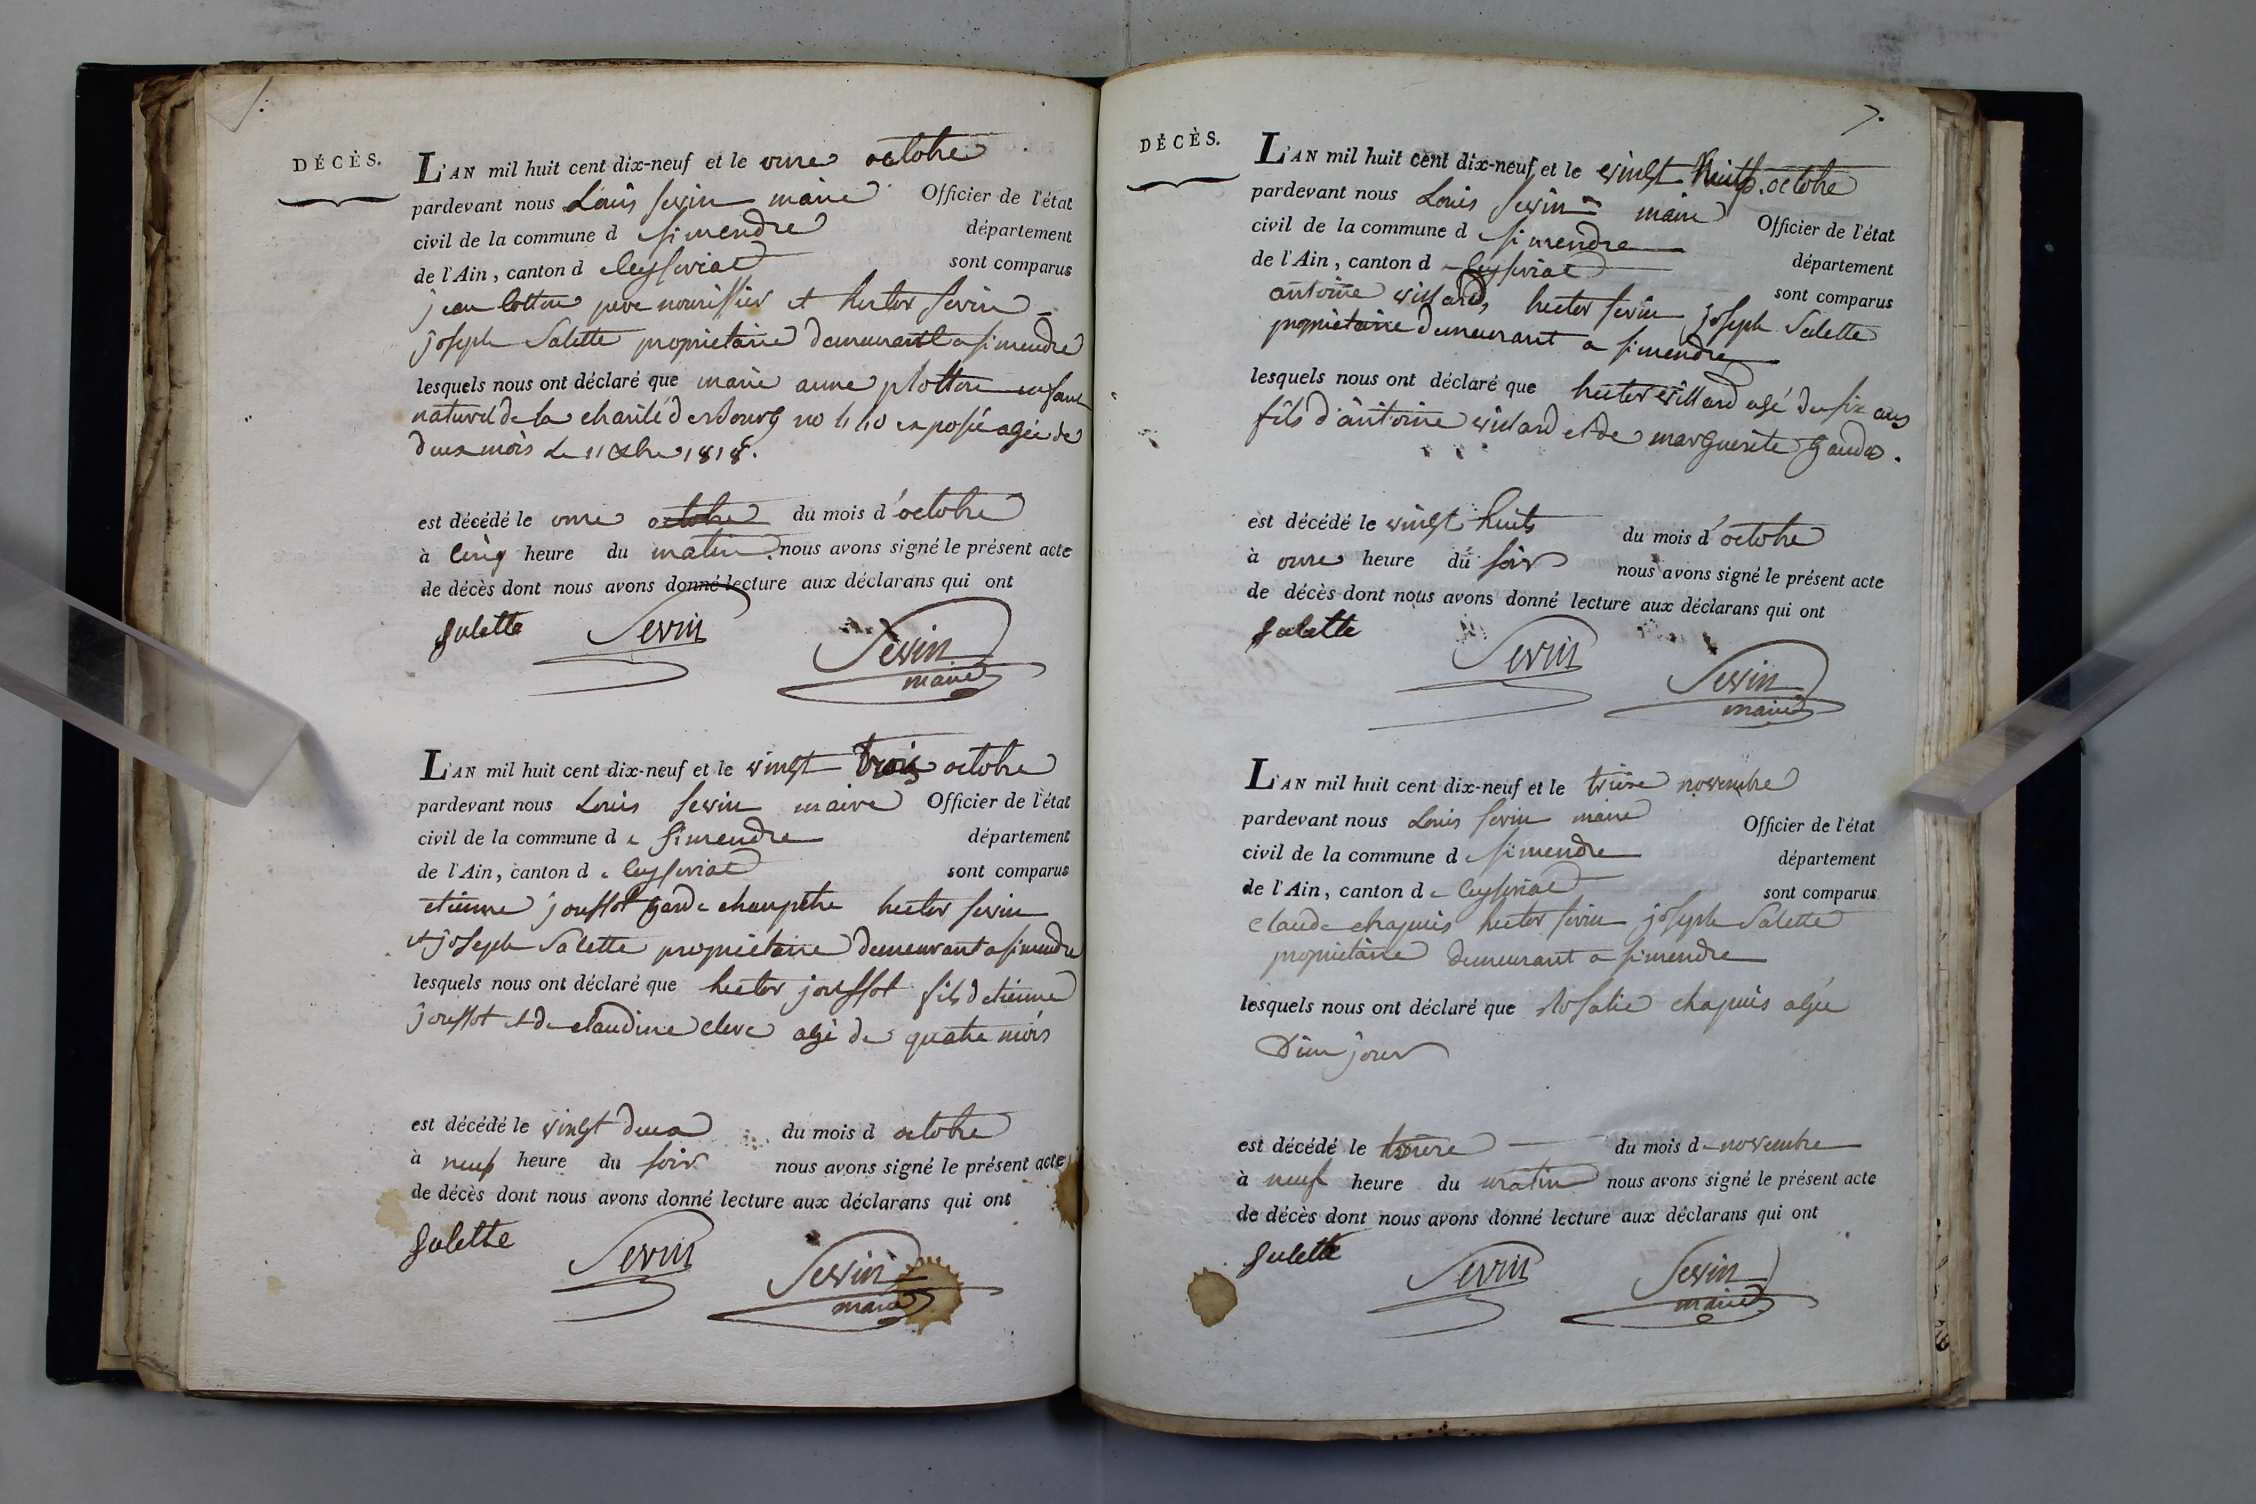 DÉCÈS.
L'AN mil huit cent dix-neuf et le onre octobre
pardevant nous Louis sevin maire Officier de l'état
civil de la commune d simendre département
de l'Ain, canton d Ceyseriat sont comparus
jean Cottin pere nourissier et hector sevin
joseph Salette proprietaire demeurant a simendre
lesquels nous ont déclaré que marie anne plottone enfant
naturel de la charité de Bourg no exposée agée de
deux mois le 11 8bre 1818.
est décédé le onre octobre du mois d'octobre
à cinq heure du matin nous avons signé le présent acte
de décès dont nous avons donné lecture aux déclarans qui ont
Salette Sevin Sevin
maire
L'AN mil huit cent dix-neuf et le vingt trois octobre
pardevant nous Louis sevin maire Officier de l'état
civil de la commune de simendre département
de l'Ain, canton de Ceyseriat sont comparus
etienne joussot garde champetre hector sevin
et joseph Salette proprietaire demeurant a simendre
lesquels nous ont déclaré que hector joussot fils d etienne
joussot et de claudine cleve agé de quatre mois
est décédé le vingt deux du mois d octobre
à neuf heure du soir nous avons signé le présent acte
de décès dont nous avons donné lecture aux déclarans qui ont
Salette Sevin Sevin
maire
7.
DÉCÈS.
L'AN mil huit cent dix-neuf et le vingt huits octobre
pardevant nous Louis sevin maire Officier de l'état
civil de la commune d simendre département
de l'Ain, canton d Ceyseriat sont comparus
antoine villard, hector sevin joseph Salette
proprietaire demeurant a simendre
lesquels nous ont déclaré que hector villard agé de six ans
fils d'antoine villard et de marguerite gaudx.
est décédé le vingt huits du mois d'octobre
à onre heure du soir nous avons signé le présent acte
de décès dont nous avons donné lecture aux déclarans qui ont
Salette Sevin Sevin
maire
L'AN mil huit cent dix-neuf et le treire novembre
pardevant nous Louis sevin maire Officier de l'état
civil de la commune d simendre département
de l'Ain, canton de Ceyseriat sont comparus
claude chapuis hector sevin joseph Salette
proprietaire demeurant a simendre
lesquels nous ont déclaré que Rosalie chapuis agée
d'un jour
est décédé le treire du mois de novembre
à neuf heure du matin nous avons signé le présent acte
de décès dont nous avons donné lecture aux déclarans qui ont
Salette Sevin Sevin
maire